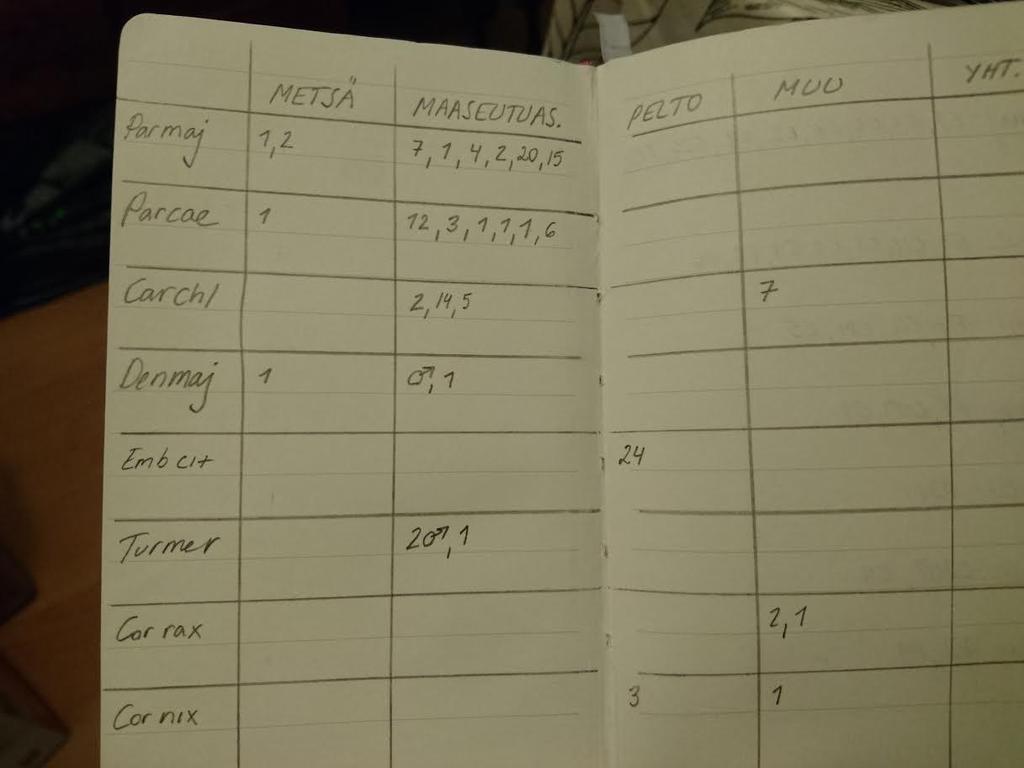 METSÄ MAASEUTUAS. PELTO MUU YHT.
Parmaj 1,2 7,1,4,2,20,15
Parcae 1 12,3,1,1,1,6
Carchl 2,14,5 7
Denmaj 1 ♂,1
Emb cit 24
Turmer 2♂,1
Cor rax 2,1
Cor nix 3 1